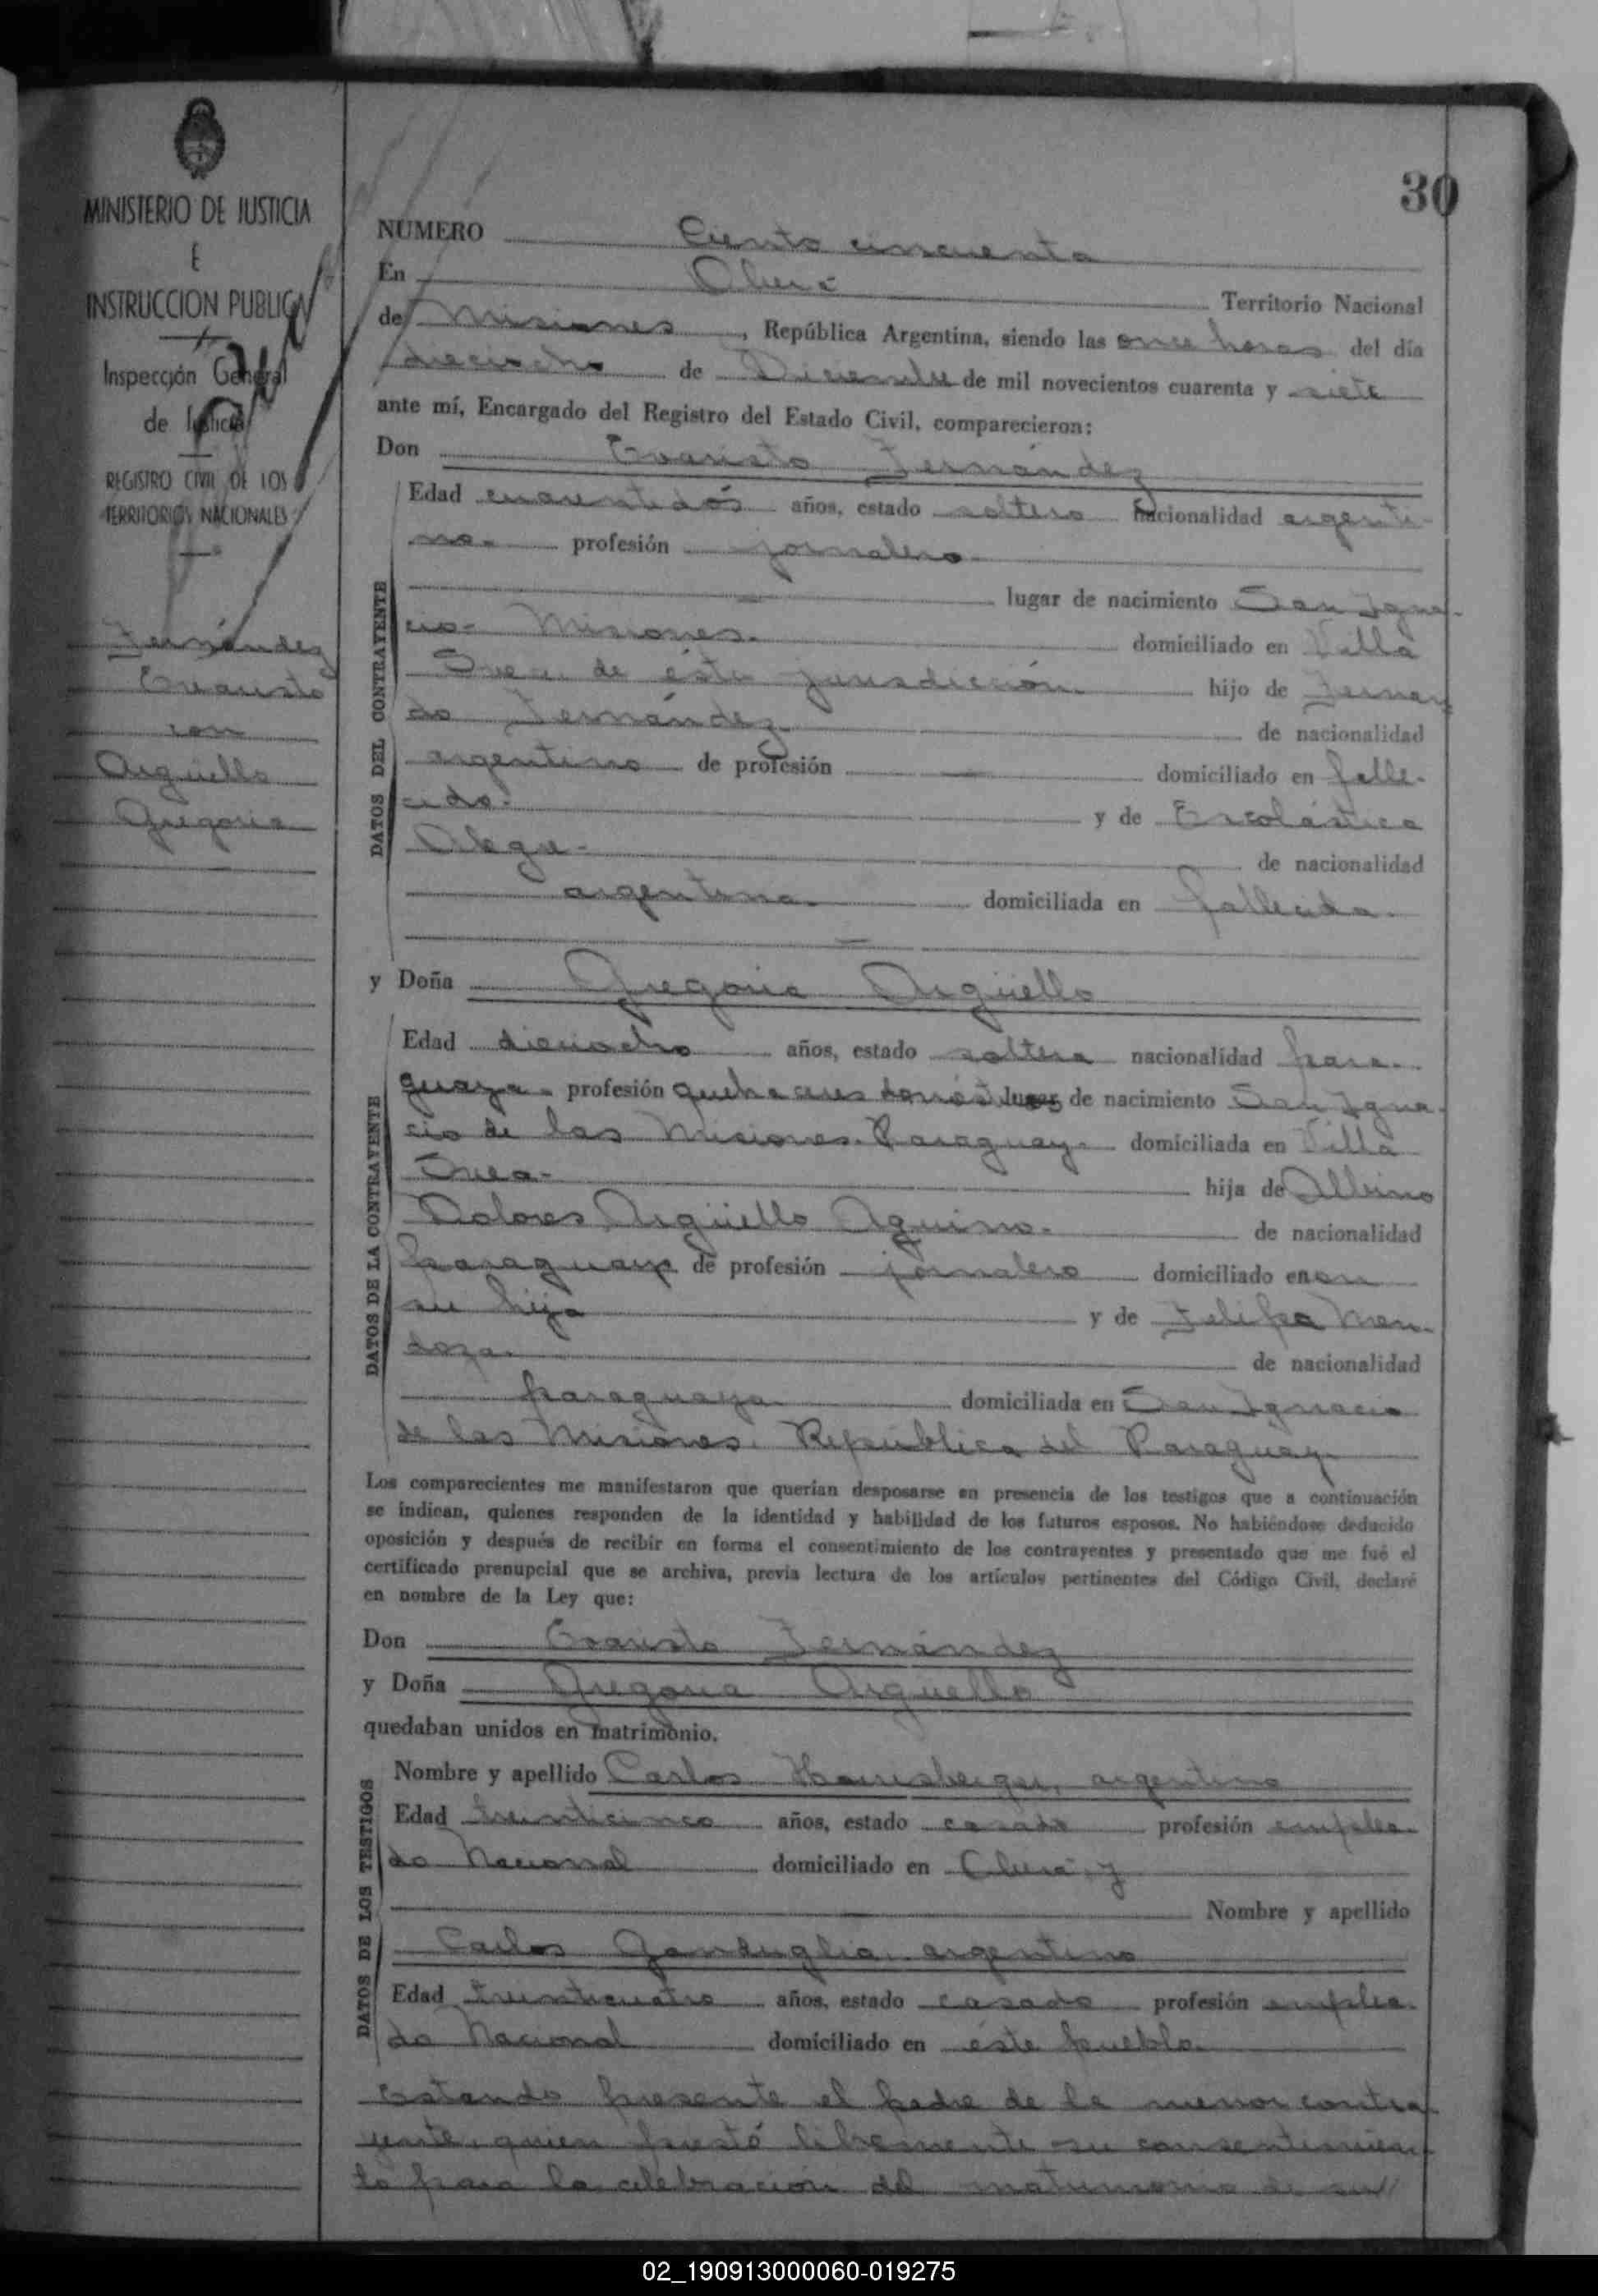 MINISTERIO DE JUSTICIA
E
INSTRUCCION PUBLICA
Inspección General
de Justicia
REGISTRO CIVIL DE LOS
TERRITORIOS NACIONALES
Fernández
Evaristo
con
Argüello
Gregoria
30
NUMERO Ciento cincuenta
En Oberá Territorio Nacional
de Misiones, República Argentina, siendo las once horas del día
dieciocho de Diciembre de mil novecientos cuarenta y siete
ante mí, Encargado del Registro del Estado Civil, comparecieron:
Don Evaristo Fernández
DATOS DEL CONTRAYENTE
Edad cuarentidós años, estado soltero nacionalidad argenti-
no.- profesión jornalero-
lugar de nacimiento San Igna-
cio- Misiones.- domiciliado en Villa
Svea de ésta jurisdicción.- hijo de Fernan
do Fernández de nacionalidad
argentino de profesión — domiciliado en falle-
cido.- y de Escolástica
Alegre- de nacionalidad
argentina- domiciliada en fallecida.-
y Doña Gregoria Argüello
DATOS DE LA CONTRAYENTE
Edad dieciocho años, estado soltera nacionalidad para-
guaya- profesión quehaceres lugar de nacimiento San Igna-
cio de las Misiones-Paraguay- domiciliada en Villa
Svea- hija de Albino
Dolores Argüello Aquino- de nacionalidad
paraguayo de profesión jornalero domiciliado en con
su hija y de Felipa Men-
doza- de nacionalidad
paraguaya domiciliada en San Ignacio
de las Misiones, República del Paraguay
Los comparecientes me manifestaron que querían desposarse en presencia de los testigos que a continuación
se indican, quienes responden de la identidad y habilidad de los futuros esposos. No habiéndose deducido
oposición y después de recibir en forma el consentimiento de los contrayentes y presentado que me fué el
certificado prenupcial que se archiva, previa lectura de los artículos pertinentes del Código Civil, declaré
en nombre de la Ley que:
Don Evaristo Fernández
y Doña Gregoria Argüello
quedaban unidos en matrimonio.
DATOS DE LOS TESTIGOS
Nombre y apellido Carlos argentino
Edad treinticinco años, estado casado profesión emplea-
do Nacional domiciliado en Oberá y
Nombre y apellido
Carlos Ganduglia, argentino
Edad treinticuatro años, estado casado profesión emplea-
do Nacional domiciliado en éste pueblo-
Estando presente el padre de la menor contra-
yente, quien prestó libremente su consentimien-
to para la celebración del matrimonio de su
02_190913000060-019275